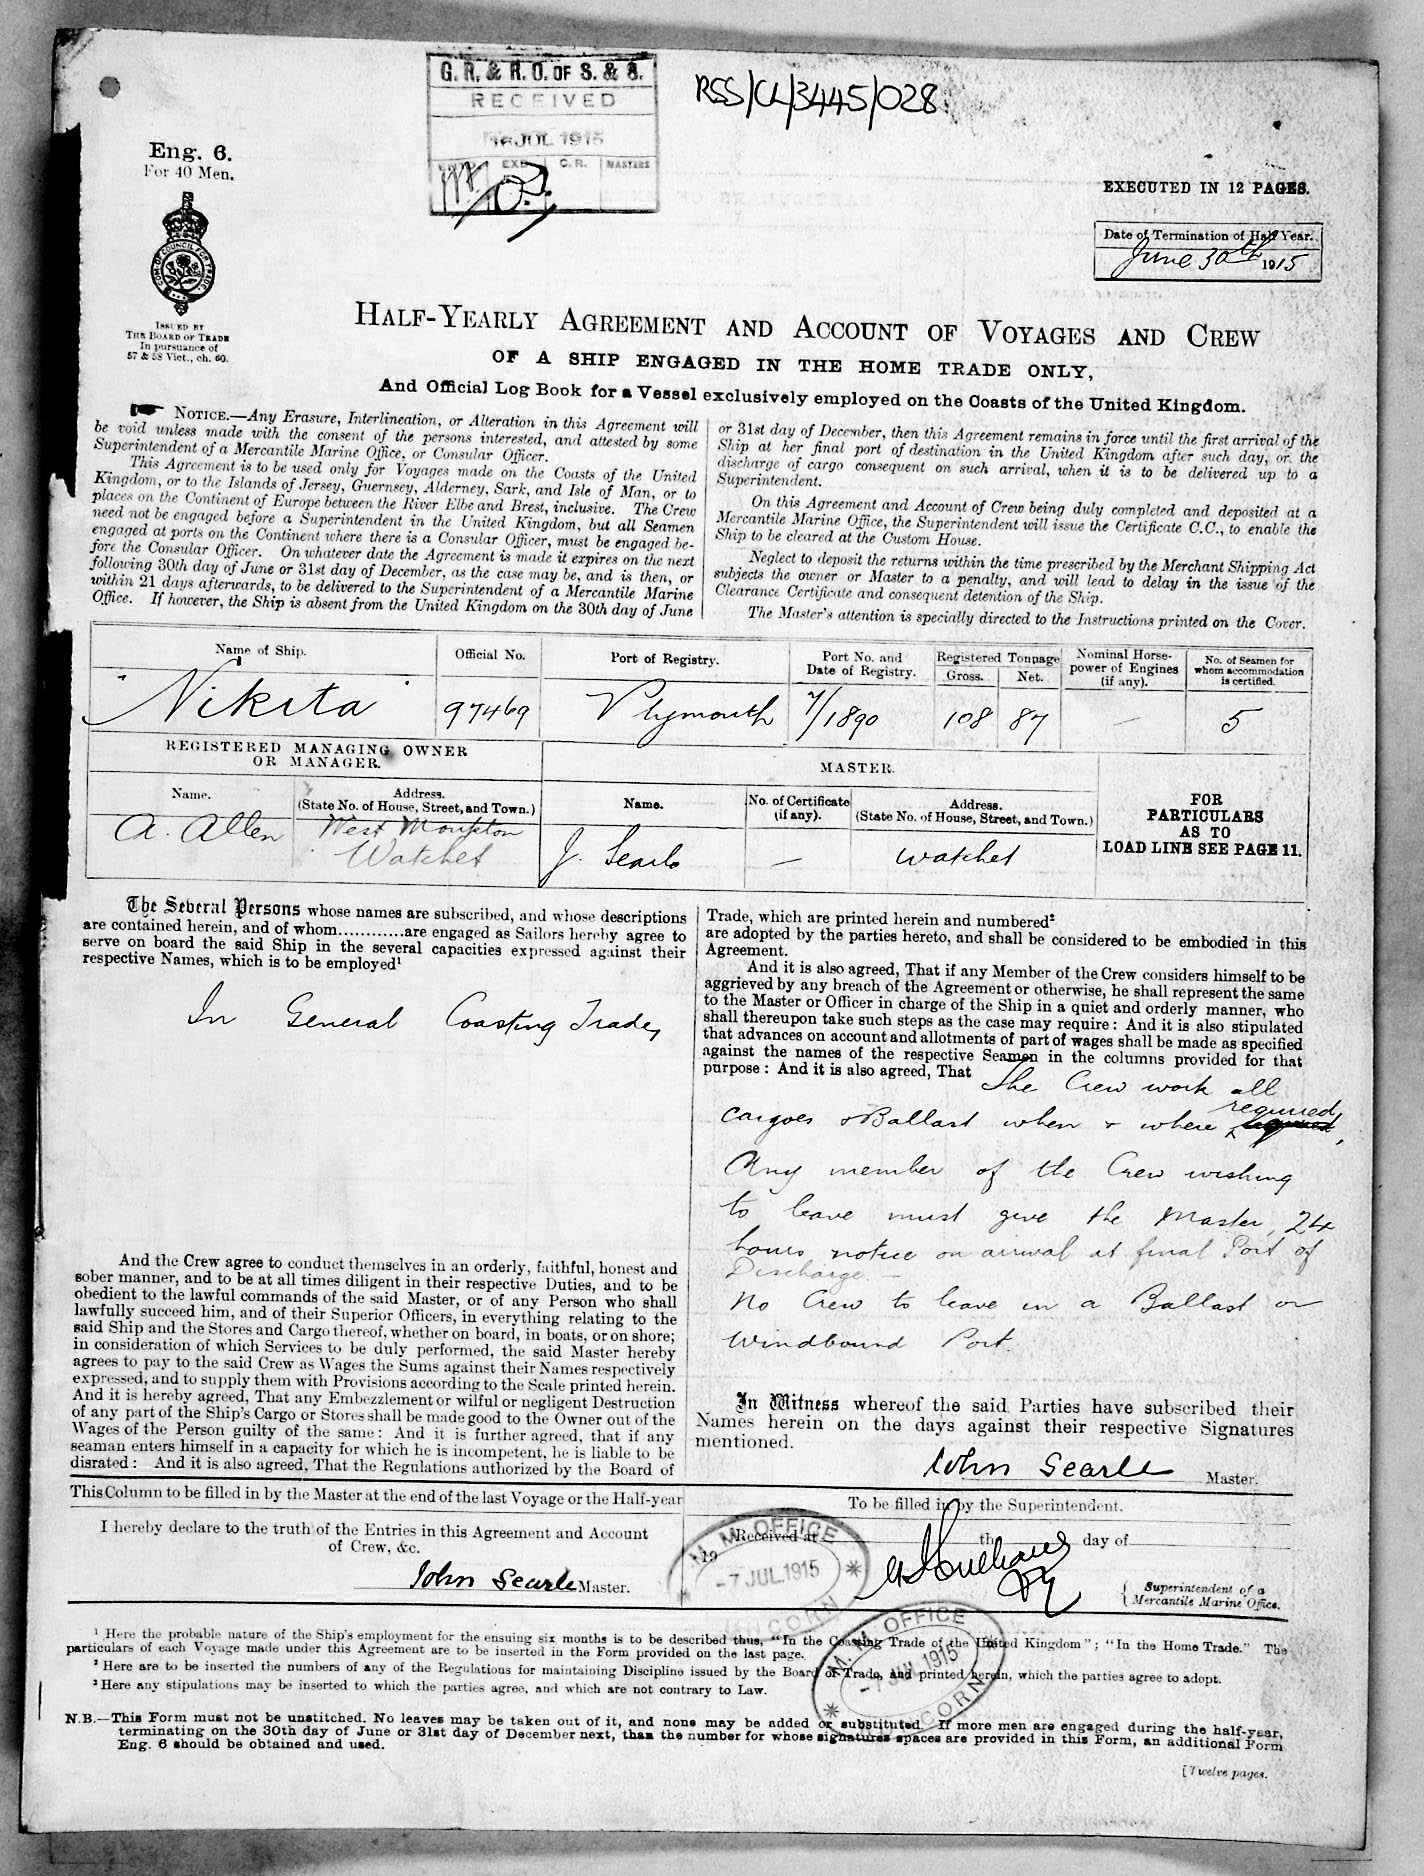 G. R. & R. O. OF S. & S.
RECEIVED
JUL 1915
EXD C.R. MASTERS
RSS/CL/3445/028
Eng. 6.
For 40 Men.
EXECUTED IN 12 PAGES.
Date of Termination of Half Year.
June 30th 1915
COM OF COUNCIL FOR TRADE
ISSUED BY
THE BOARD OF TRADE
In pursuance of
57 & 58 Vict., ch. 60.
HALF-YEARLY AGREEMENT AND ACCOUNT OF VOYAGES AND CREW
OF A SHIP ENGAGED IN THE HOME TRADE ONLY,
And Official Log Book for a Vessel exclusively employed on the Coasts of the United Kingdom.
NOTICE.—Any Erasure, Interlineation, or Alteration in this Agreement will
be void unless made with the consent of the persons interested, and attested by some
Superintendent of a Mercantile Marine Office, or Consular Officer.
This Agreement is to be used only for Voyages made on the Coasts of the United
Kingdom, or to the Islands of Jersey, Guernsey, Alderney, Sark, and Isle of Man, or to
places on the Continent of Europe between the River Elbe and Brest, inclusive. The Crew
need not be engaged before a Superintendent in the United Kingdom, but all Seamen
engaged at ports on the Continent where there is a Consular Officer, must be engaged be-
fore the Consular Officer. On whatever date the Agreement is made it expires on the next
following 30th day of June or 31st day of December, as the case may be, and is then, or
within 21 days afterwards, to be delivered to the Superintendent of a Mercantile Marine
Office. If however, the Ship is absent from the United Kingdom on the 30th day of June
or 31st day of December, then this Agreement remains in force until the first arrival of the
Ship at her final port of destination in the United Kingdom after such day, or the
discharge of cargo consequent on such arrival, when it is to be delivered up to a
Superintendent.
On this Agreement and Account of Crew being duly completed and deposited at a
Mercantile Marine Office, the Superintendent will issue the Certificate C.C., to enable the
Ship to be cleared at the Custom House.
Neglect to deposit the returns within the time prescribed by the Merchant Shipping Act
subjects the owner or Master to a penalty, and will lead to delay in the issue of the
Clearance Certificate and consequent detention of the Ship.
The Master's attention is specially directed to the Instructions printed on the Cover.
Name of Ship. Official No. Port of Registry. Port No. and Date of Registry. Registered Tonnage Gross. Net. Nominal Horse-power of Engines (if any). No. of Seamen for whom accommodation is certified.
"Nikita" 97469 Plymouth 7/1890 108 87 — 5
REGISTERED MANAGING OWNER
OR MANAGER.
MASTER.
Name. Address. (State No. of House, Street, and Town.) Name. No. of Certificate (if any). Address. (State No. of House, Street, and Town.)
A. Allen West
Watchet
J. Searle — Watchet
FOR
PARTICULARS
AS TO
LOAD LINE SEE PAGE 11.
The Several Persons whose names are subscribed, and whose descriptions
are contained herein, and of whom............are engaged as Sailors hereby agree to
serve on board the said Ship in the several capacities expressed against their
respective Names, which is to be employed¹
In General Coasting Trade,
And the Crew agree to conduct themselves in an orderly, faithful, honest and
sober manner, and to be at all times diligent in their respective Duties, and to be
obedient to the lawful commands of the said Master, or of any Person who shall
lawfully succeed him, and of their Superior Officers, in everything relating to the
said Ship and the Stores and Cargo thereof, whether on board, in boats, or on shore;
in consideration of which Services to be duly performed, the said Master hereby
agrees to pay to the said Crew as Wages the Sums against their Names respectively
expressed, and to supply them with Provisions according to the Scale printed herein.
And it is hereby agreed, That any Embezzlement or wilful or negligent Destruction
of any part of the Ship's Cargo or Stores shall be made good to the Owner out of the
Wages of the Person guilty of the same: And it is further agreed, that if any
seaman enters himself in a capacity for which he is incompetent, he is liable to be
disrated: And it is also agreed, That the Regulations authorized by the Board of
Trade, which are printed herein and numbered²
are adopted by the parties hereto, and shall be considered to be embodied in this
Agreement.
And it is also agreed, That if any Member of the Crew considers himself to be
aggrieved by any breach of the Agreement or otherwise, he shall represent the same
to the Master or Officer in charge of the Ship in a quiet and orderly manner, who
shall thereupon take such steps as the case may require: And it is also stipulated
that advances on account and allotments of part of wages shall be made as specified
against the names of the respective Seamen in the columns provided for that
purpose: And it is also agreed, That The Crew work all
cargoes & Ballast when & where required,
Any member of the Crew wishing
to leave must give the Master, 24
hours notice on arrival at final Port of
Discharge. —
No Crew to leave in a Ballast or
Windbound Port.
In Witness whereof the said Parties have subscribed their
Names herein on the days against their respective Signatures
mentioned.
John Searle Master.
This Column to be filled in by the Master at the end of the last Voyage or the Half-year
I hereby declare to the truth of the Entries in this Agreement and Account
of Crew, &c.
John Searle Master.
To be filled in by the Superintendent.
Received at the day of
19
Superintendent of a
Mercantile Marine Office.
M. M. OFFICE
-7 JUL.1915
RUNCORN
M. M. OFFICE
-7 JUL 1915
RUNCORN
¹ Here the probable nature of the Ship's employment for the ensuing six months is to be described thus, "In the Coasting Trade of the United Kingdom"; "In the Home Trade." The
particulars of each Voyage made under this Agreement are to be inserted in the Form provided on the last page.
² Here are to be inserted the numbers of any of the Regulations for maintaining Discipline issued by the Board of Trade, and printed herein, which the parties agree to adopt.
³ Here any stipulations may be inserted to which the parties agree, and which are not contrary to Law.
N.B.—This Form must not be unstitched. No leaves may be taken out of it, and none may be added or substituted. If more men are engaged during the half-year,
terminating on the 30th day of June or 31st day of December next, than the number for whose signatures spaces are provided in this Form, an additional Form
Eng. 6 should be obtained and used.
[Twelve pages.